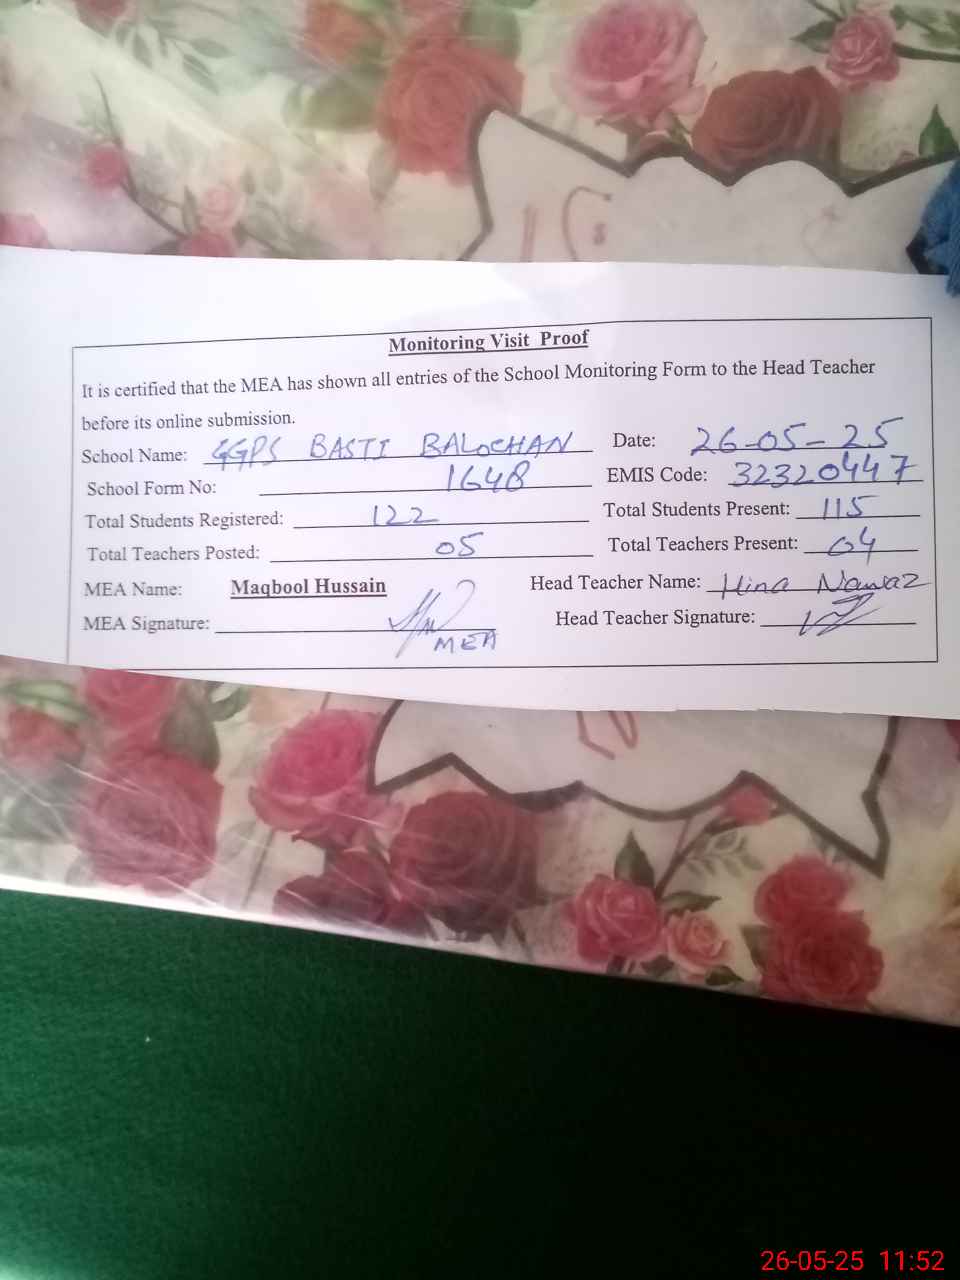 Monitoring Visit Proof
It is certified that the MEA has shown all entries of the School Monitoring Form to the Head Teacher
before its online submission.
School Name: GGPS BASTI BALOCHAN Date: 26-05-25
School Form No: 1648 EMIS Code: 32320447
Total Students Registered: 122 Total Students Present: 115
Total Teachers Posted: 05 Total Teachers Present: 04
MEA Name: Maqbool Hussain Head Teacher Name: Hina Nawaz
MEA Signature: Head Teacher Signature:
MEA
26-05-25 11:52